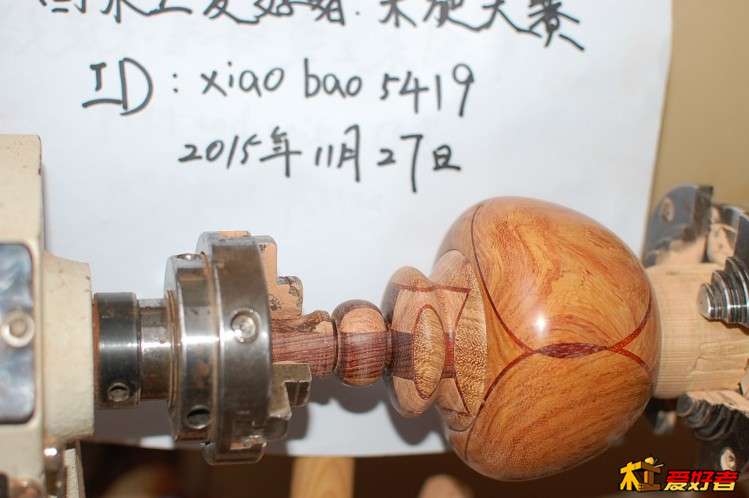 木工爱好者 木旋大赛
ID: xiao bao 5419
2015年11月27日
木工爱好者